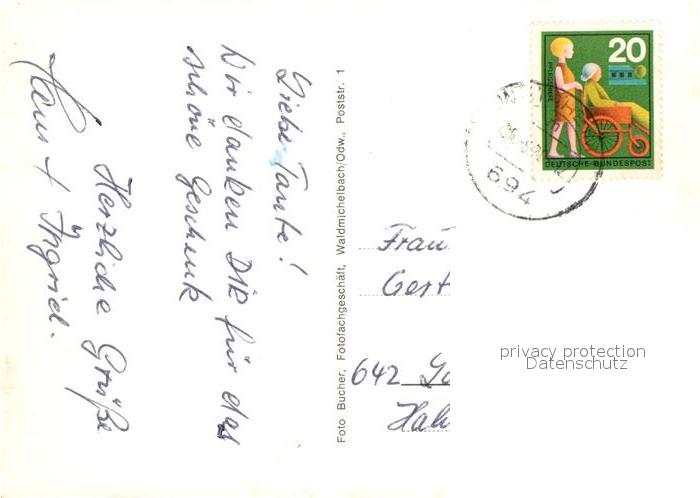 Liebe Tante!
Wir danken DIR für das
schöne Geschenk
Herzliche Grüße
Hans + Ingrid.
Foto Bucher, Fotofachgeschäft, Waldmichelbach/Odw., Poststr. 1
20
DEUTSCHE BUNDESPOST
694
Frau
642
privacy protection
Datenschutz